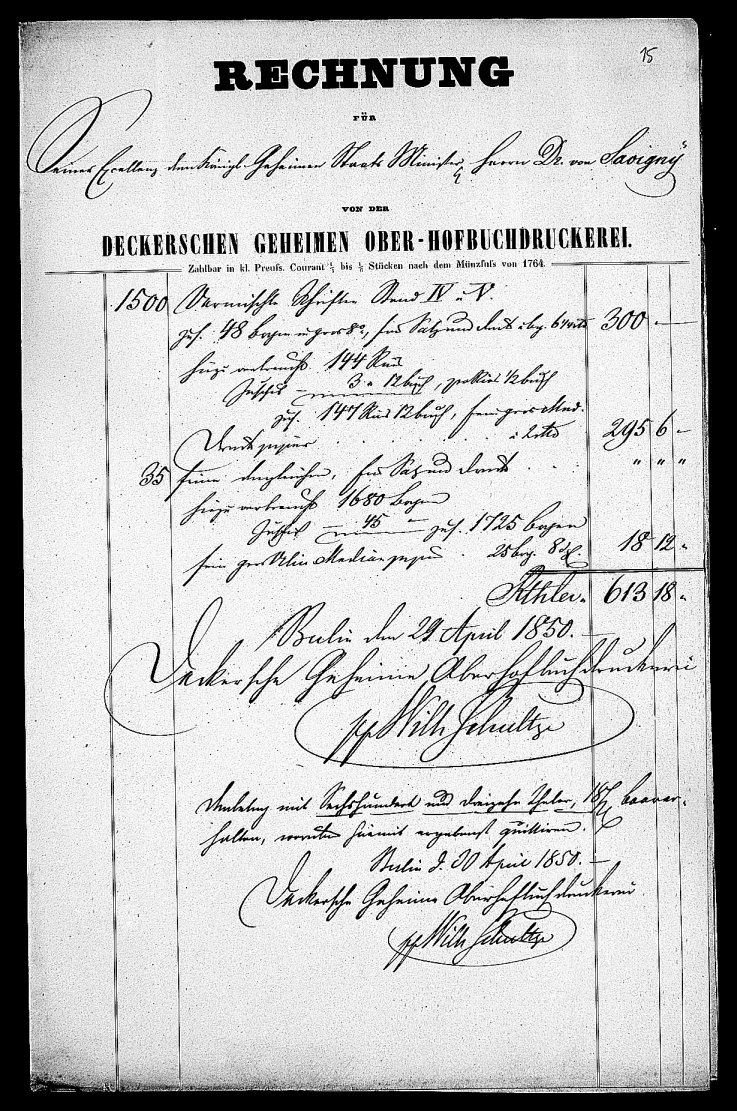 15
RECHNUNG
FÜR
Seiner Excellenz dem Königl. Geheimen Staats Minister, Herrn Dr. von Savigny
VON DER
DECKERSCHEN GEHEIMEN OBER-HOFBUCHDRUCKEREI.
Zahlbar in kl. Preuſs. Courant bis Stücken nach dem Münzfuſs von 1764.
1500 Vermischte Schriften Band IV u. V.
zus. 48 Bogen in gros 8°, für Satz und Druck 300 —
hiezu verbraucht 144 Ries
Zuschuß 3 " 12 buch,
zus. 147 Ries 12 buch, fein gros Med.
Druckpapier 295 6 —
35 feine dergleichen, für Satz und Druck " " "
hiezu verbraucht 1680 Bogen
Zuschuß — 45 — zus. 1725 bogen
fein Median papier 18 12 "
Rthler. 613 18 "
Berlin den 29 April 1850. —
Deckersche Geheime Oberhofbuchdruckerei
pp Wilh Schultze
mit Sechshundert und dreizehn Thaler, 18 baar er-
halten, worüber hiemit ergebenst quittiren.
Berlin d. 30 April 1850. —
Deckersche Geheime Oberhofbuchdruckerei
pp Wilh Schultze